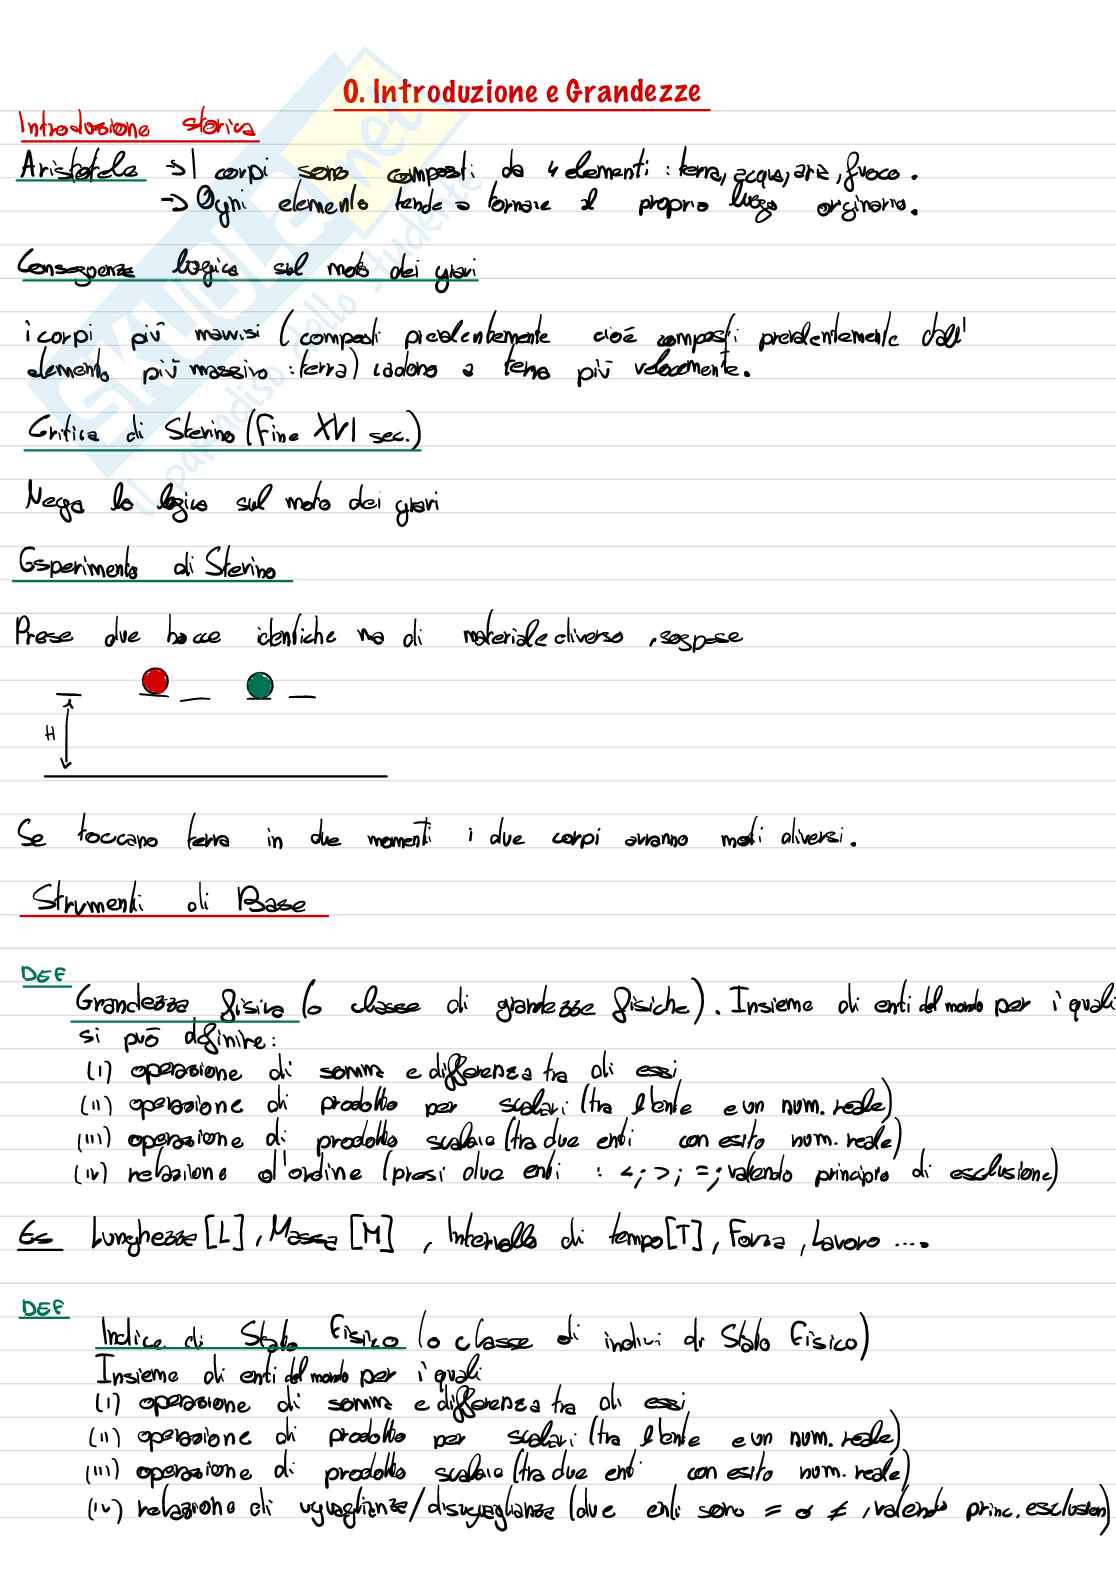 0. Introduzione e Grandezze
Introduzione storica
Aristotele → I corpi sono composti da 4 elementi : terra, acqua, aria, fuoco.
→ Ogni elemento tende a tornare al proprio luogo orginario.
Conseguenza logica sul moto dei gravi
i corpi più massisi (composti prevalentemente cioè composti prevalentemente dall'
elemento più massivo : terra) cadono a terra più velocemente.
Critica di Stevino (Fine XVI sec.)
Nega la logica sul moto dei gravi
Esperimento di Stevino
Prese due bocce identiche ma di materiale diverso, sospese
H
Se toccano terra in due momenti i due corpi avranno moti diversi.
Strumenti di Base
DEF
Grandezza fisica (o classe di grandezze fisiche). Insieme di enti del mondo per i quali
si può definire:
(i) operazione di somma e differenza tra di essi
(ii) operazione di prodotto per scalari (tra l'ente e un num. reale)
(iii) operazione di prodotto scalare (tra due enti con esito num. reale)
(iv) relazione d'ordine (presi due enti : <; >; =; valendo principio di esclusione)
Es Lunghezza [L], Massa [M] , Intervallo di tempo [T], Forza, Lavoro ....
DEF
Indice di Stato Fisico (o classe di indici di Stato Fisico)
Insieme di enti del mondo per i quali
(i) operazione di somma e differenza tra di essi
(ii) operazione di prodotto per scalari (tra l'ente e un num. reale)
(iii) operazione di prodotto scalare (tra due enti con esito num. reale)
(iv) relazione di uguaglianza/disuguaglianza (due enti sono = o ≠, valendo princ. esclusion)
SKUOLA.net
il paradiso dello studente